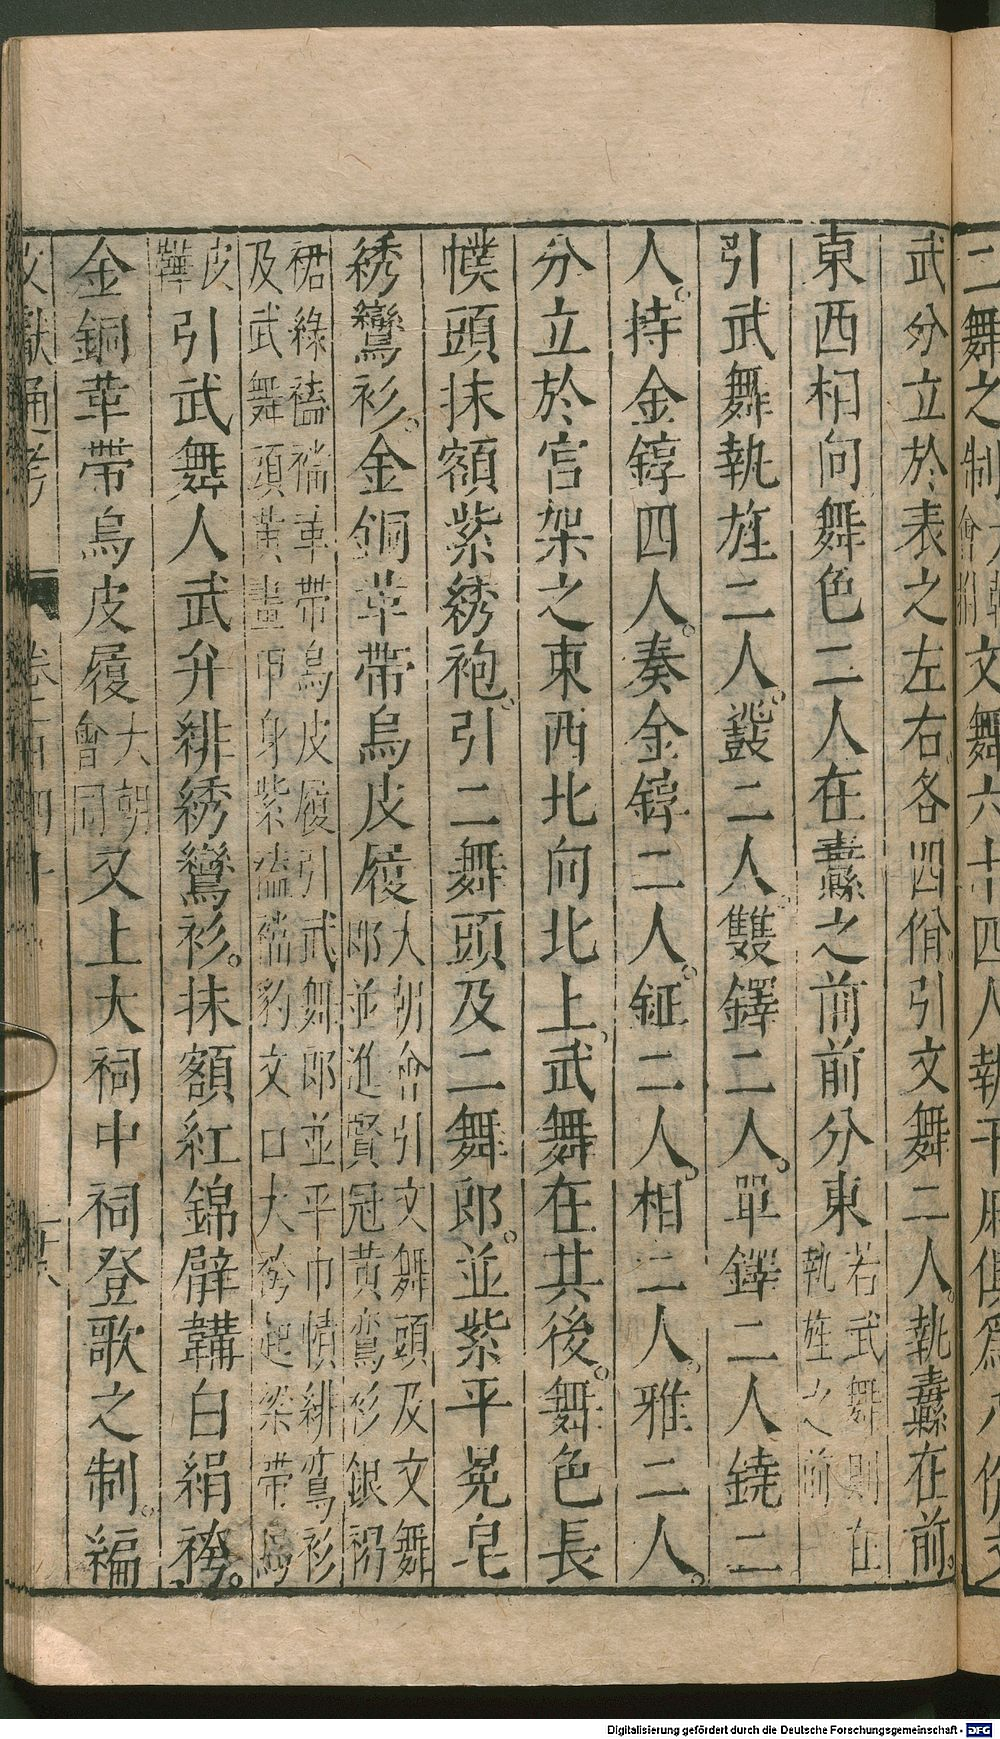 二舞之制
文舞六十四人執
武分立於表之左右各四佾引文舞二人執纛在前
東西相向舞色二人在纛之前前分東
若武舞則在
執旌之前
引武舞執旌二人鼗二人雙鐸二人單鐸二人鐃二
人持金錞四人奏金錞二人鉦二人相二人雅二人
分立於宮架之東西北向北上武舞在其後舞色長
幞頭抹額紫綉袍引二舞頭及二舞郎並紫平冕皂
綉鸞衫金銅革帶烏皮履
大朝會引文舞頭及文舞
郎並進賢冠黃鸞衫銀褐
裙綠𧞔襠革帶烏皮履引武舞郎並平巾幘緋鸞衫
及武舞頭黃畫甲身紫𧞔襠豹文口大袴起梁帶烏
皮
鞾
引武舞人武弁緋綉鸞衫抹額紅錦臂韝白絹袴
金銅革帶烏皮履
大朝
會同
又上大祠中祠登歌之制編
文獻通考
卷一百四十
Digitalisierung gefördert durch die Deutsche Forschungsgemeinschaft - DFG